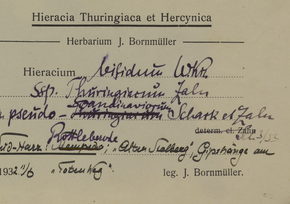 Hieracia Thuringiaca et Hercynica
Herbarium J. Bornmüller
Hieracium bifidum W.Kit.
Ssp. Thuringiorum Zahn
Scandinaviorum
pseudo- Thuringiacum Schack et Zahn
determ. cl. Zahn
Rottleberode
Süd-Harz: Stempeda; "Alter Stolberg", Gipshänge am
1932 "Totenweg" leg. J. Bornmüller.